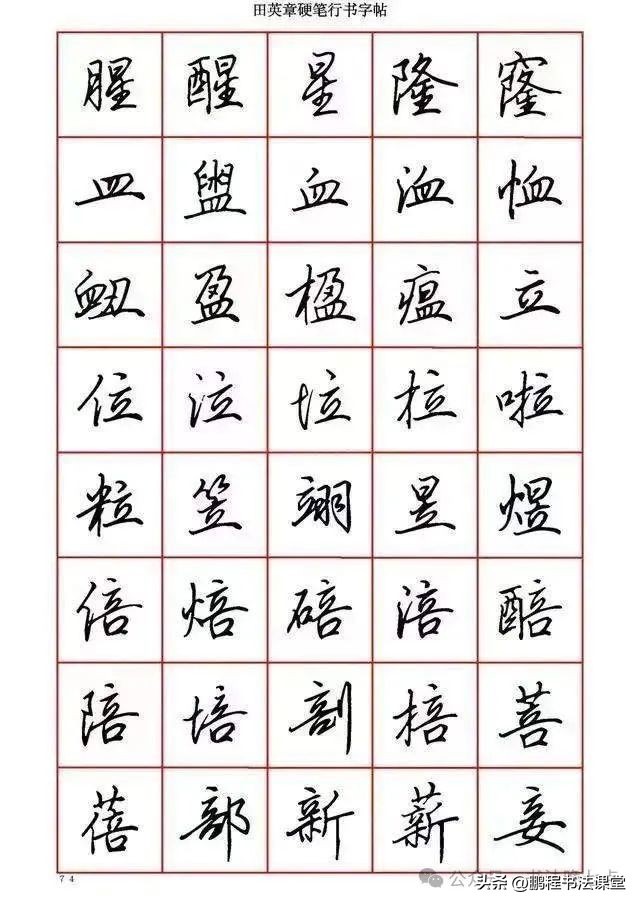 田英章硬笔行书字帖
腥 醒 星 隆 窿
皿 盥 血 洫 恤
衄 盈 楹 瘟 立
位 泣 垃 拉 啦
粒 笠 翊 昱 煜
倍 焙 碚 涪 醅
陪 培 剖 棓 菩
蓓 部 新 薪 妾
74
头条@鹏程书法课堂